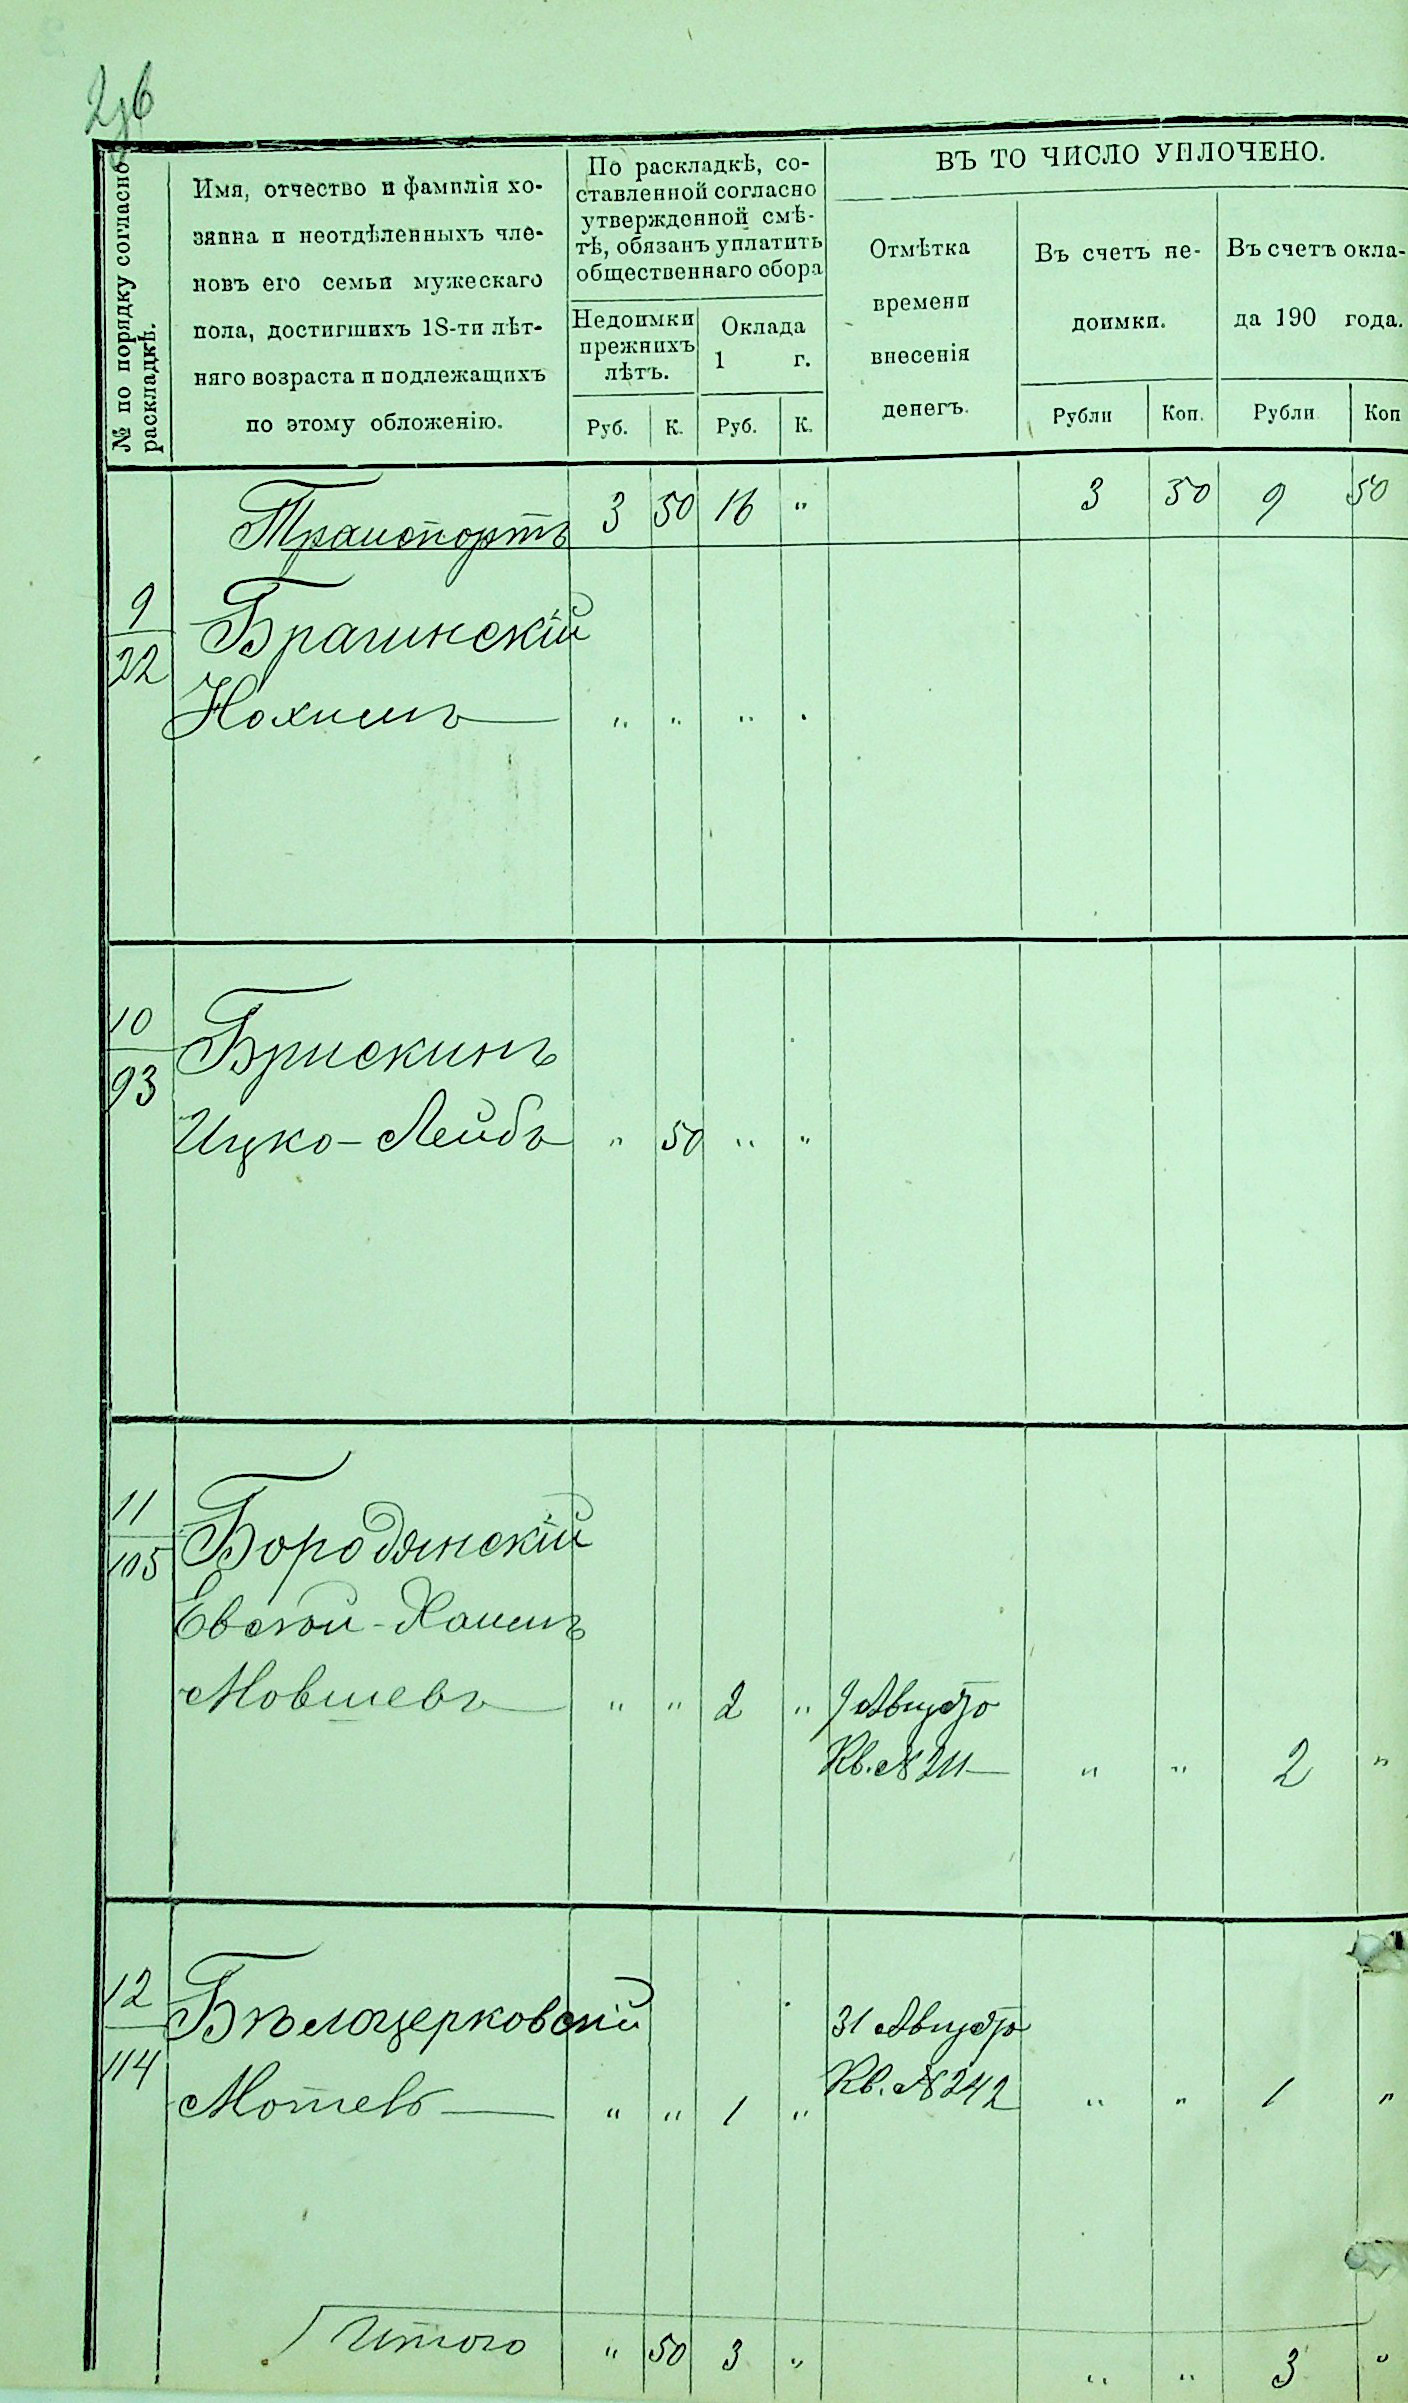 296
№ по порядку согласно
раскладкѣ.
Имя, отчество и фамилія хо-
зяина и неотдѣленныхъ чле-
новъ его семьи мужескаго
пола, достигшихъ 18-ти лѣт-
няго возраста и подлежащихъ
по этому обложенію.
По раскладкѣ, со-
ставленной согласно
утвержденной смѣ-
тѣ, обязанъ уплатить
общественнаго сбора
Недоимки
прежнихъ
лѣтъ.
Оклада
1 г.
Руб. К. Руб. К.
ВЪ ТО ЧИСЛО УПЛОЧЕНО.
Отмѣтка
времени
внесенія
денегъ.
Въ счетъ не-
доимки.
Въ счетъ окла-
да 190 года.
Рубли Коп. Рубли Коп
Транспортъ 3 50 16 " 3 50 9 50
9
22
Брагинскій
Нохимъ " " " "
10
93
Брискинъ
Ицко-Лейбъ " 50 " "
11
105
Бородянскій
Евсей-Хаимъ
Мовшевъ " " 2 " 9 Августа
Кв. № 211 " " 2 "
12
114
Бѣлоцерковскій 31 Августа
Мотель " " 1 " Кв. № 242 " " 1 "
Итого " 50 3 " " " 3 "